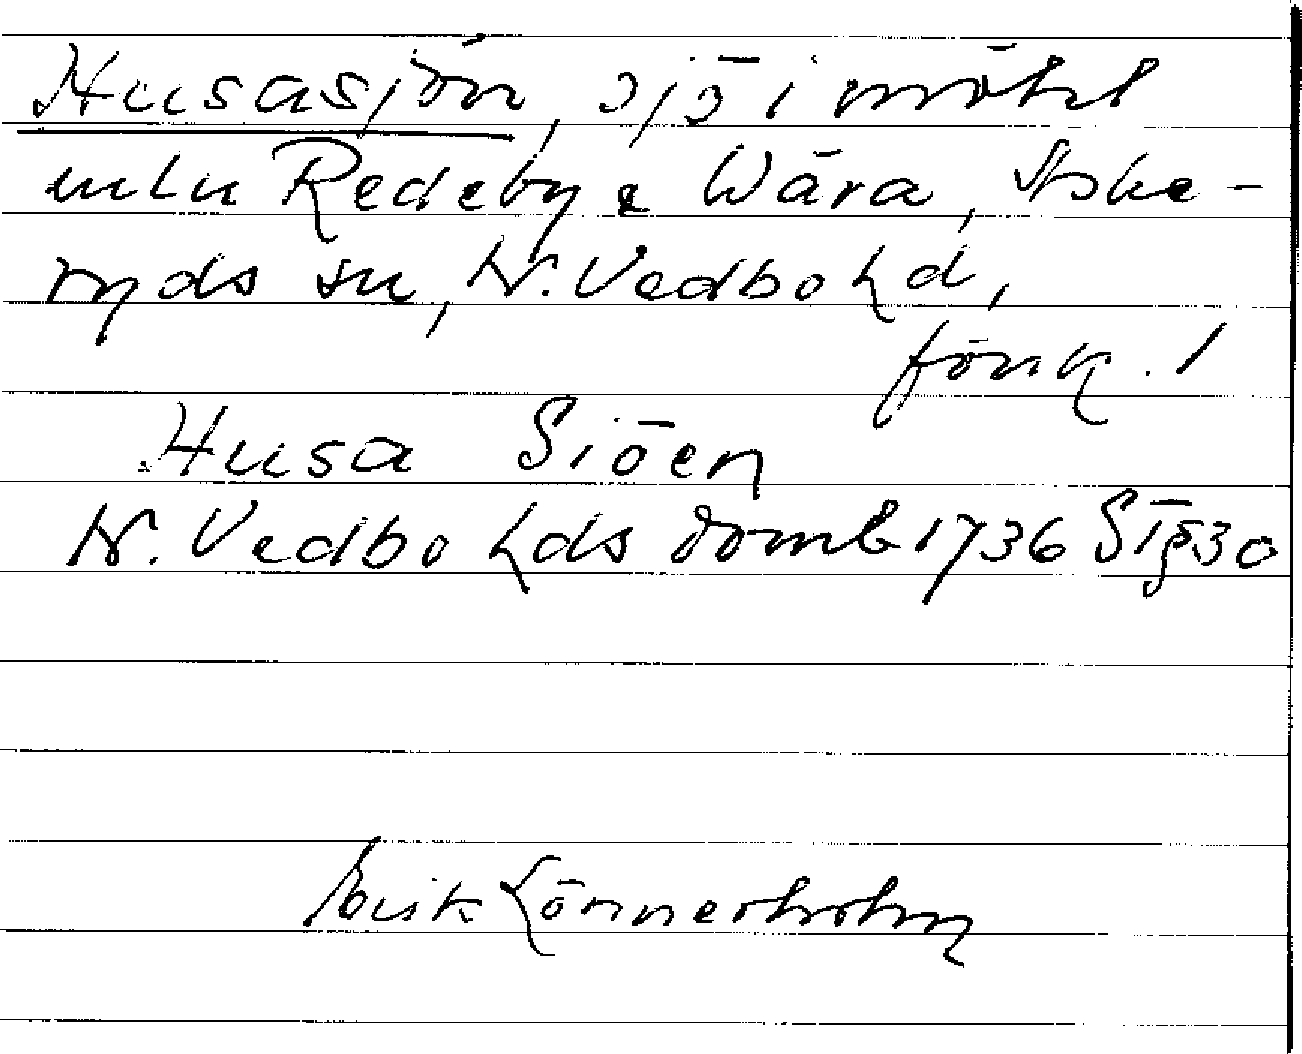 Husasjön, sjö i mötet
mln Redeby o Wära, Aske-
ryds sn, N. Vedbo hd,
Jönk. l
Husa Siöen
N. Vedbo hds domb 1736 ST § 30
Erik Lönnerholm